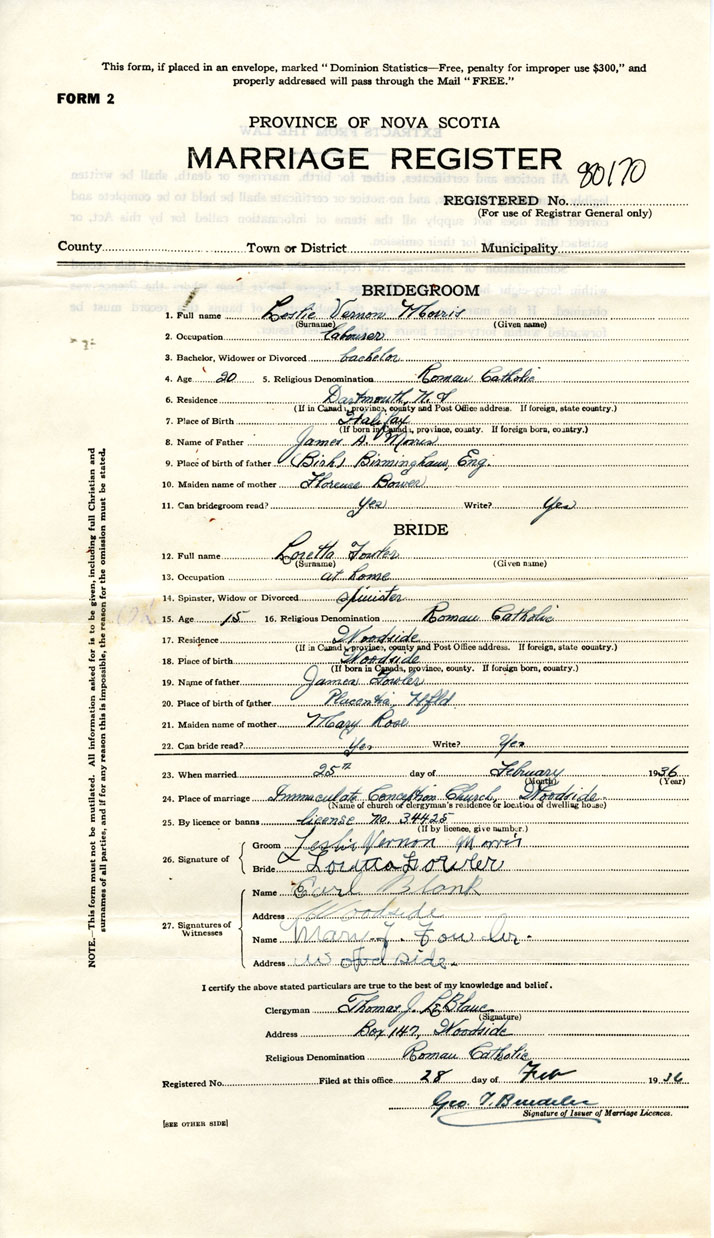 This form, if placed in an envelope, marked “Dominion Statistics—Free, penalty for improper use $300,” and
properly addressed will pass through the Mail “FREE.”
FORM 2
PROVINCE OF NOVA SCOTIA
MARRIAGE REGISTER 80170
REGISTERED No.
(For use of Registrar General only)
County Town or District Municipality
BRIDEGROOM
1. Full name Leslie Vernon Morris
(Surname) (Given name)
2. Occupation labourer
3. Bachelor, Widower or Divorced bachelor
4. Age 20 5. Religious Denomination Roman Catholic
6. Residence Dartmouth, N.S
(If in Canada, province, county and Post Office address. If foreign, state country.)
7. Place of Birth Halifax
(If born in Canada, province, county. If foreign born, country.)
8. Name of Father James A. Morris
9. Place of birth of father (Birk) Birmingham, Eng.
10. Maiden name of mother Florence Bower
11. Can bridegroom read? Yes Write? Yes
BRIDE
12. Full name Loretta Fowler
(Surname) (Given name)
13. Occupation at home
14. Spinster, Widow or Divorced spinister
15. Age 15 16. Religious Denomination Roman Catholic
17. Residence Woodside
(If in Canada, province, county and Post Office address. If foreign, state country.)
18. Place of birth Woodside
(If born in Canada, province, county. If foreign born, country.)
19. Name of father James Fowler
20. Place of birth of father Placentia, Nfld
21. Maiden name of mother Mary Rose
22. Can bride read? Yes Write? Yes
23. When married 25th day of February 1936
(Month) (Year)
24. Place of marriage Immaculate Conception Church, Woodside
(Name of church or clergyman's residence or location of dwelling house)
25. By licence or banns license no. 34425
(If by licence, give number.)
26. Signature of Groom Leslie Vernon Morris
Bride Loretta Fowler
27. Signatures of Witnesses Name Earl Blank
Address Woodside
Name Mary J. Fowler.
Address Woodside.
I certify the above stated particulars are true to the best of my knowledge and belief.
Clergyman Thomas J. LeBlanc
(Signature)
Address Box 147, Woodside
Religious Denomination Roman Catholic
Registered No. Filed at this office 28 day of Feb 1936
Geo. T.
Signature of Issuer of Marriage Licences.
[SEE OTHER SIDE]
NOTE.—This form must not be mutilated. All information asked for is to be given, including full Christian and
surnames of all parties, and if for any reason this is impossible, the reason for the omission must be stated.